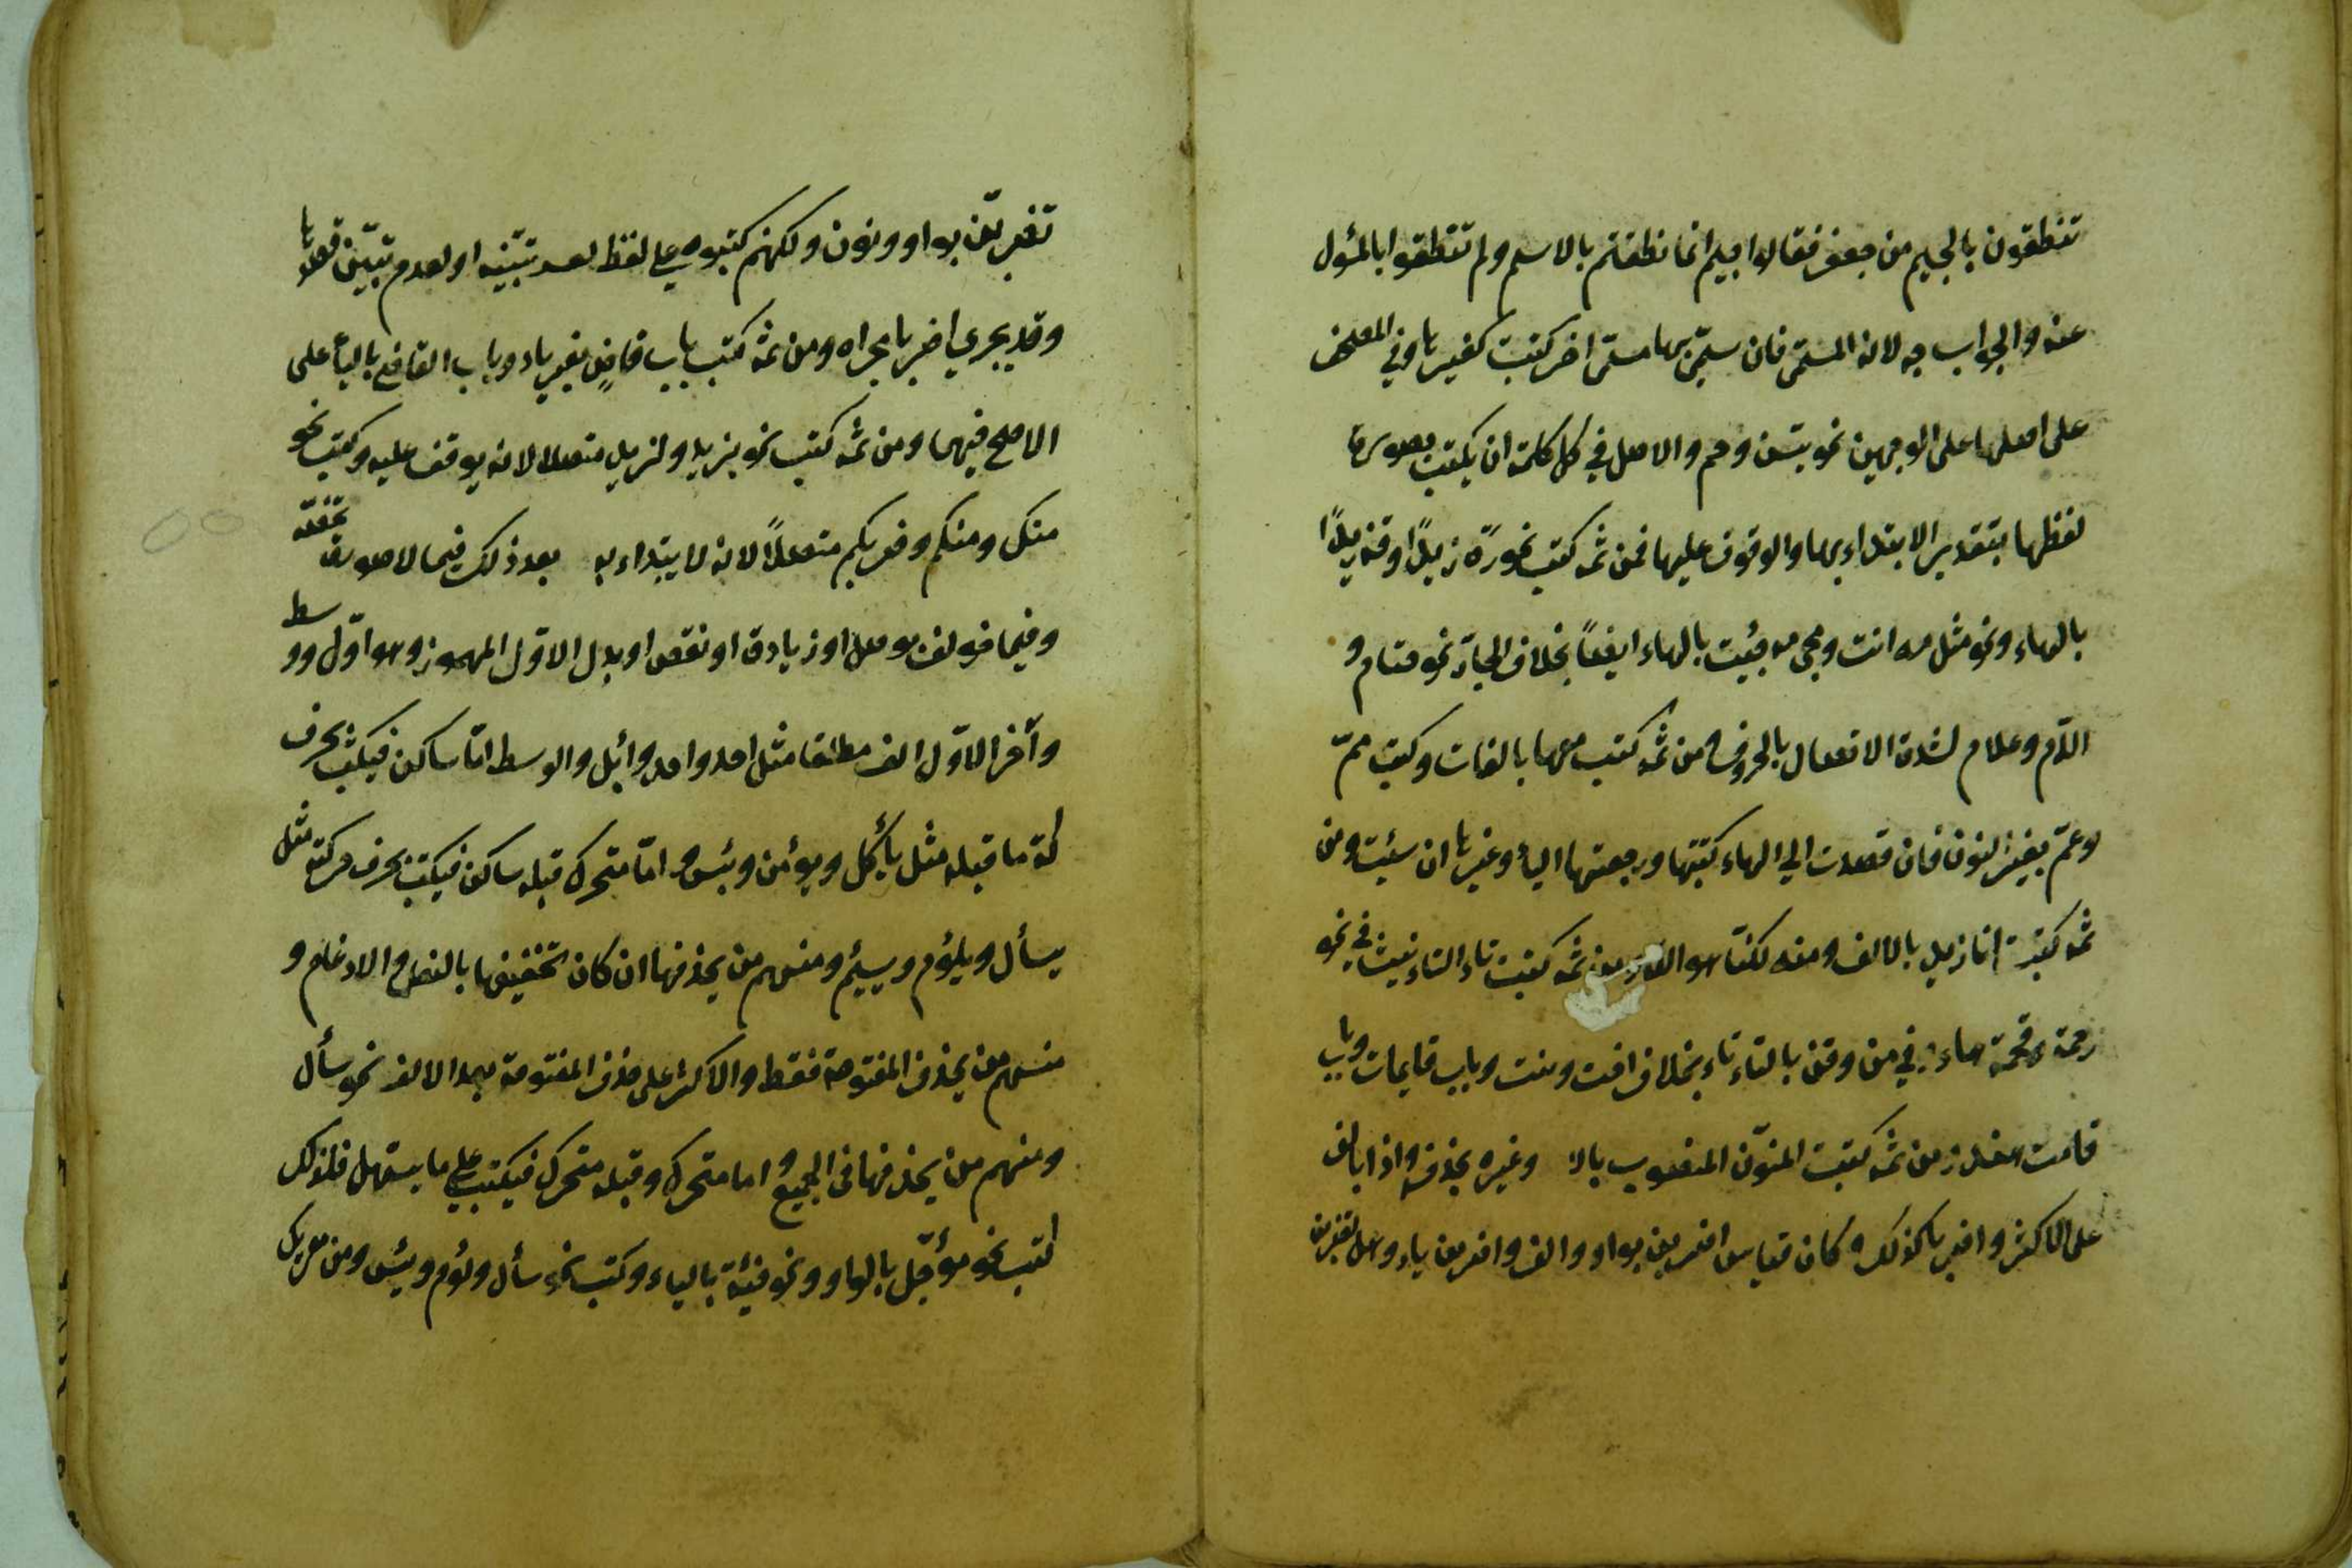 تنطقون بالجيم من جعفر فقالوا جيم انما نطقتم بالاسم ولم تنطقوا بالمسؤل
عنه والجواب جه لانه المسمى فان سمى بها مسمى اخر كتبت كغيرها وفي المصحف
على اصلها على الوجهين نحو يس وحم والاصل في كل كلمة ان يكتب بصورة
لفظها بتقدير الابتداء بها والوقوف عليها فمن ثمه كتب نحو رَهْ زيدًا وقه زيدًا
بالهاء ونحو مثل مه انت ومجئ مه جئت بالهاء ايضًا بخلاف الجارّ نحو حتام و
الام وعلام لشدة الاتصال بالحروف ومن ثمه كتب معها بالفات وكتب ممّ
وعمّ بغير النون فان قصدت الي الهاء كتبتها ورجعتها الياء وغيرها ان شئت ومن
ثمه كتبت انا زيد بالالف ومنه لكنّا هو الله ومن ثمه كتبت تاء التانيث في نحو
رحمة وقمحة هاء وفي من وقف بالتاء تاء بخلاف اخت وبنت وباب قايمات وباب
قامت هند ومن ثمه كتبت المنوّن المنصوب بالا وغيره بحذف واذا بالف
على الاكثر واضربا كذلك وكان قياس اضربن بواو والف واضربن بياء وهل تضربن
تضربنّ بواو ونون ولكنهم كتبوه على لفظ لعسر تبيّنه او لعدم تبيّن قصدها
وقد يجري اضربا مجراه ومن ثمه كتب باب قاضٍ بغير ياء وباب القاضي بالياء على
الاصح فيهما ومن ثمه كتب نحو بزيد ولزيد متصلا لانه لا يوقف عليه وكتب نحو
منك ومنكم وضربكم متصلًا لانه لا يبتداء به بعد ذلك فيما لا صورة تخصّه
وفيما خولف بوصل او زيادة او نقص او بدل الاوّل المهموز وهو اوّل ووسط
وآخر الاوّل الف مطلقا مثل احد واحد وائبل والوسط امّا ساكن فيكتب بحرف
كة ما قبله مثل يأكل ويؤمن وبئس و امّا متحرك قبله ساكن فيكتب بحرف حركته مثل
يسأل ويلؤم ويسئم ومنهم من يحذفها ان كان تخفيفها بالنقل والادغام و
منهم من يحذف المفتوحة فقط والاكثر على حذف المفتوحة بعد الالف نحو سأل
ومنهم من يحذفها فى الجميع و اما متحرك وقبله متحرك فيكتب على ما يسهل فلذلك
كتب نحو مؤجّل بالواو ونحو فئة بالياء وكتب نحو سأل ولؤم ويئس ومن مقريك